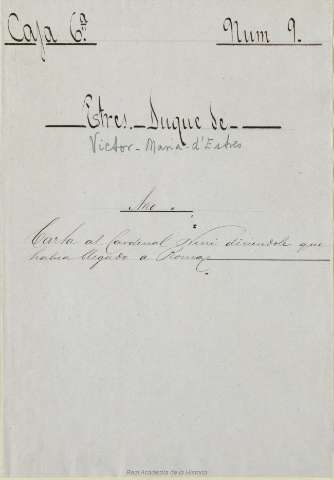 Caja 6ª. Num 9.
Estres. Duque de
Victor-Maria-d'Estres
Carta al Cardenal diciendole que
habia llegado a Roma
Real Academia de la Historia